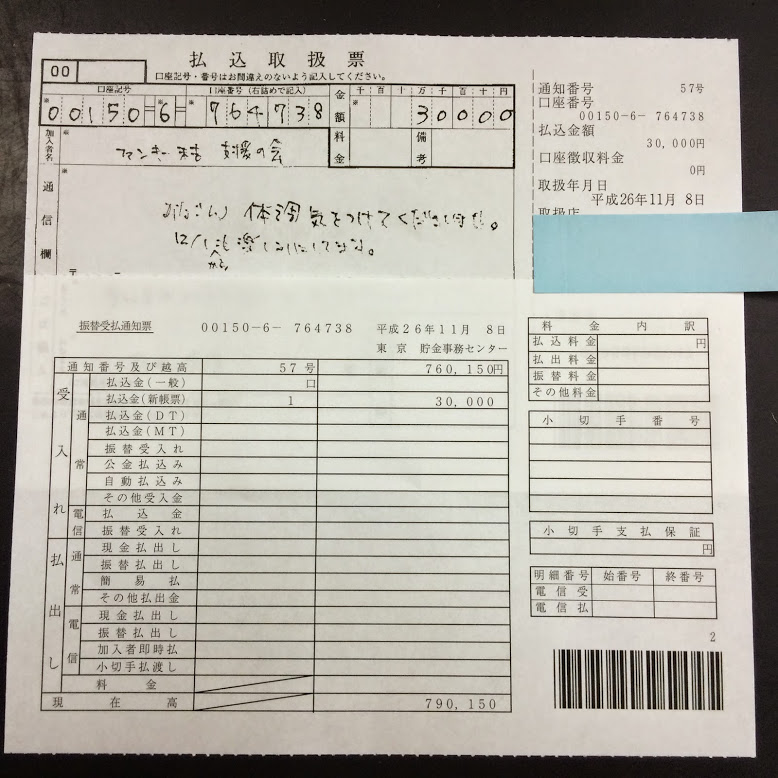 払込取扱票
00
口座記号・番号はお間違えのないよう記入してください。
口座記号
口座番号(右詰めで記入)
00150-6-
764738
金額
千百十万千百十円
30000
加入者名
支援の会
料金
備考
通信欄
体調気をつけてください
通知番号 57号
口座番号
00150-6- 764738
払込金額
30,000円
口座徴収料金
0円
取扱年月日
平成26年11月 8日
取扱店
振替受払通知票 00150-6- 764738 平成26年11月 8日
東京 貯金事務センター
通知番号及び越高 57号 760,150円
受入れ
通常
払込金(一般) 口
払込金(新帳票) 1 30,000
払込金(DT)
払込金(MT)
振替受入れ
公金払込み
自動払込み
その他受入金
電信
払込金
振替受入れ
払出し
通常
現金払出し
振替払出し
簡易払
その他払出金
電信
現金払出し
振替払出し
加入者即時払
小切手払渡し
料金
現在高 790,150
料金内訳
払込料金 円
払出料金
振替料金
その他料金
小切手番号
小切手支払保証
円
明細番号 始番号 終番号
電信受
電信払
2